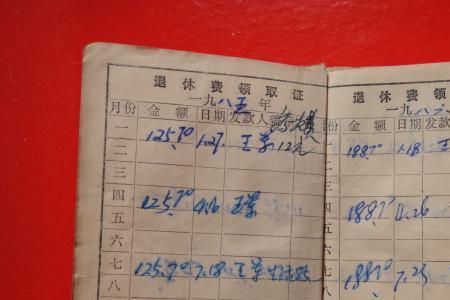 退休费领取证
一九八五年
月份 金额 日期 发款人
一 125.70 1.27 王
二
三
四 125.70 4.16 王
五
六
七 125.70 7.18 王
八
退休费领
一九八六
份 金额 日期 发款
188.70 1.18 王
188.70 4.26
188.70 7.23